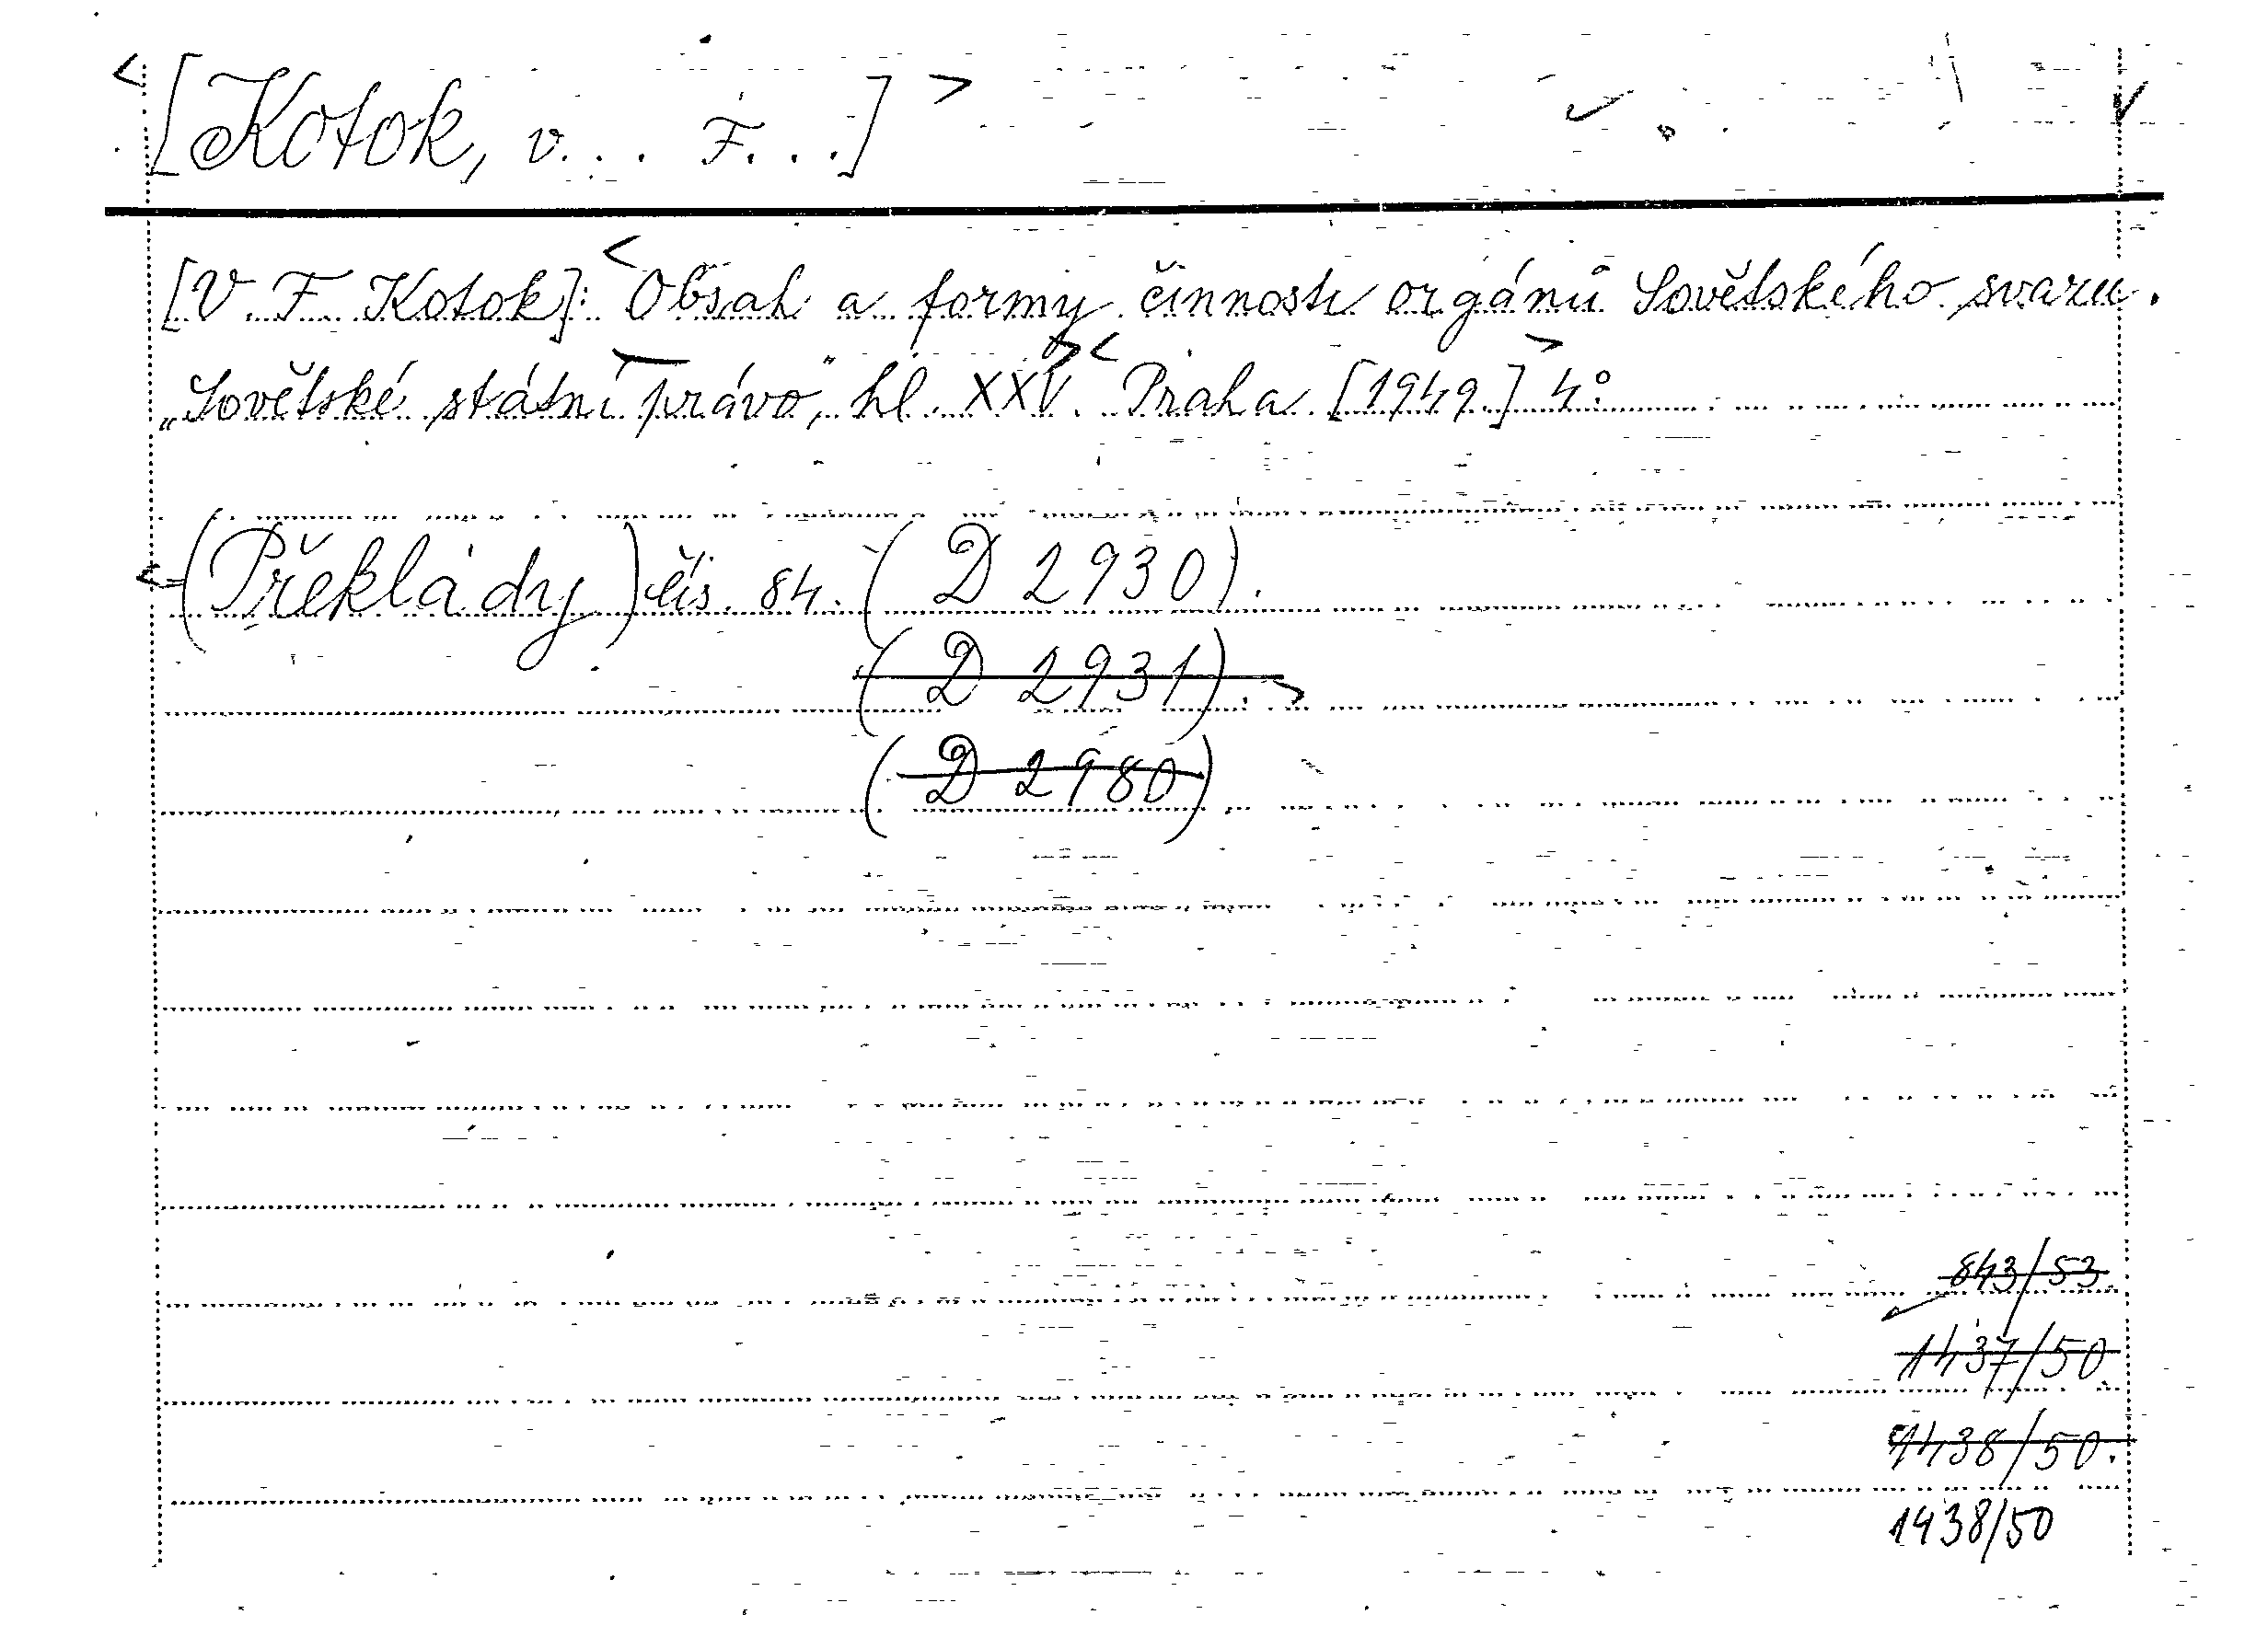 <[Kotok, V... F...]>
[V. F. Kotok]: <Obsah a formy činnosti orgánů Sovětského svazu.
„Sovětské státní právo," hl. XXV. >< Praha [1949.] > 4°.
<=(Překlady) čís. 84. (D 2930).
(D 2931).>
(D 2980)
843/53
1437/50
1438/50.
1438/50